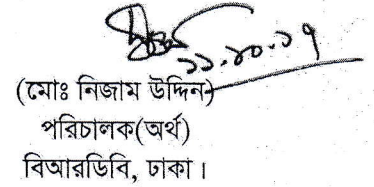 ১১.১০.১৭
(মোঃ নিজাম উদ্দিন)
পরিচালক(অর্থ)
বিআরডিবি, ঢাকা।